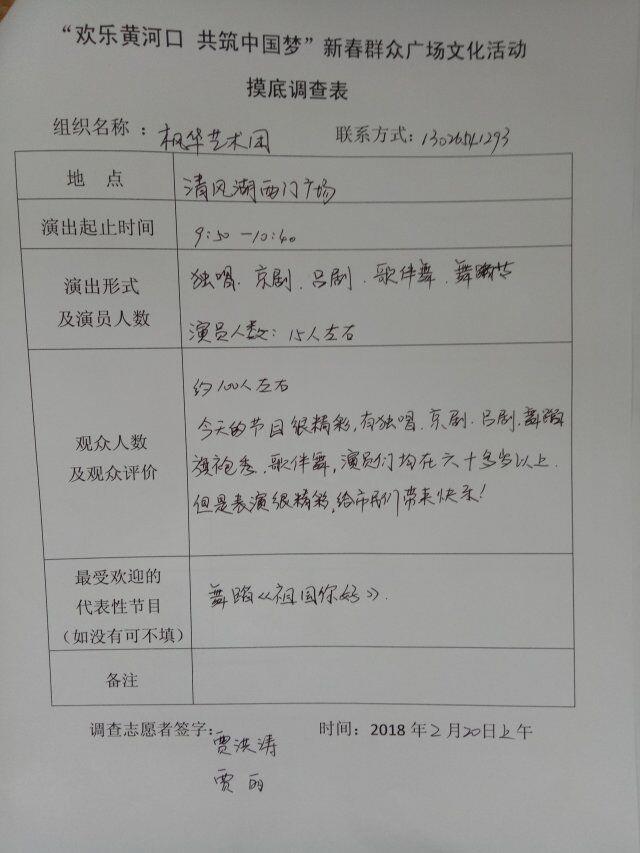 “欢乐黄河口 共筑中国梦”新春群众广场文化活动
摸底调查表
组织名称 ：枫华艺术团 联系方式：13026541293
地 点 清风湖西门广场
演出起止时间 9:50—10:40
演出形式
及演员人数
独唱、京剧、吕剧、歌伴舞、舞蹈等
演员人数：15人左右
观众人数
及观众评价
约100人左右
今天的节目很精彩,有独唱、京剧、吕剧、舞蹈
旗袍秀、歌伴舞,演员们均在六十多岁以上.
但是表演很精彩,给市民们带来快乐!
最受欢迎的
代表性节目
（如没有可不填）
舞蹈《祖国你好》.
备注
调查志愿者签字： 时间：2018年2月20日上午
贾洪涛
贾丽